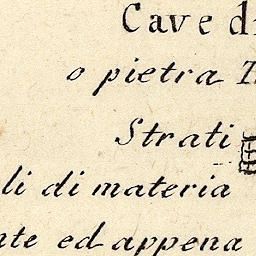 Cave di
o pietra
Strati
li di materia
nte ed appena